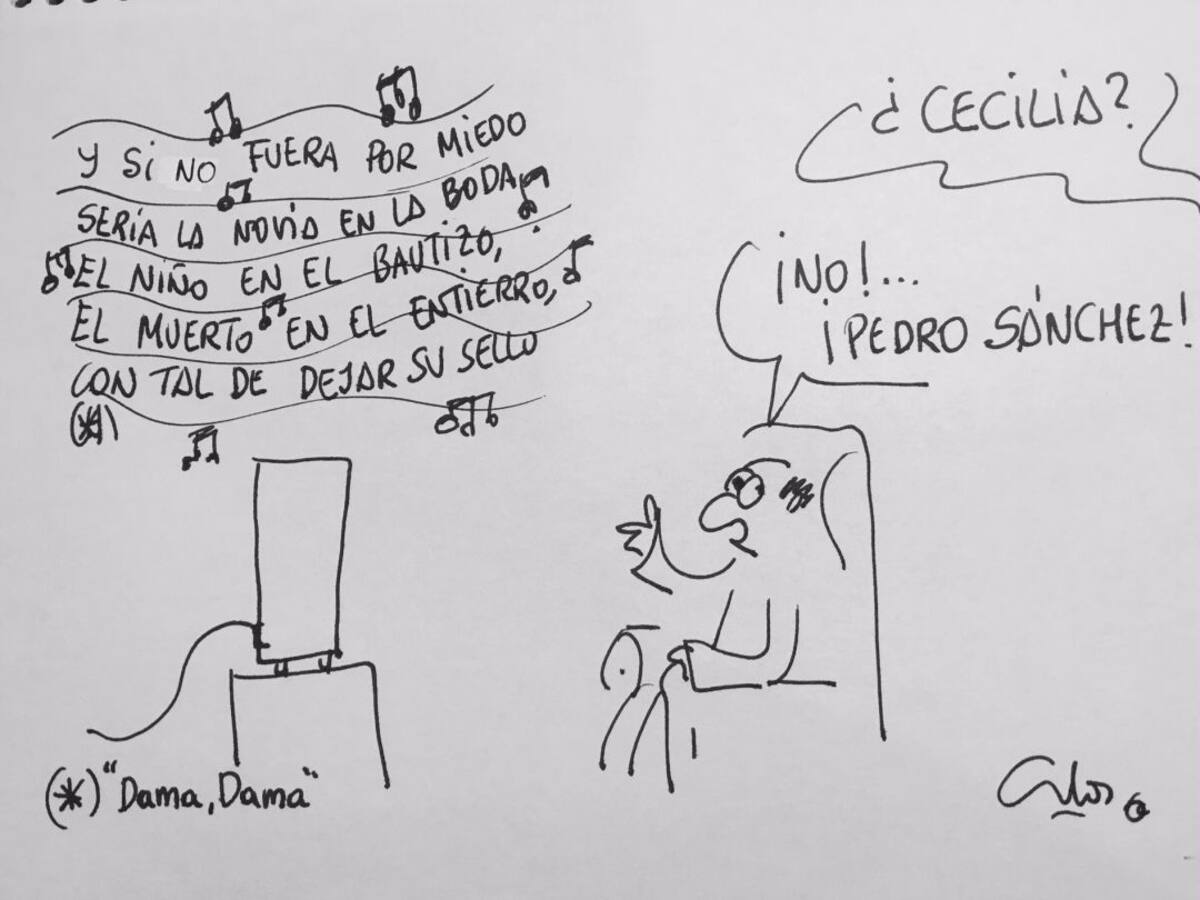 Y SI NO FUERA POR MIEDO
SERÍA LA NOVIA EN LA BODA,
EL NIÑO EN EL BAUTIZO,
EL MUERTO EN EL ENTIERRO,
CON TAL DE DEJAR SU SELLO
(*)
¿CECILIA?
¡NO!...
¡PEDRO SÁNCHEZ!
(*) "Dama, Dama"